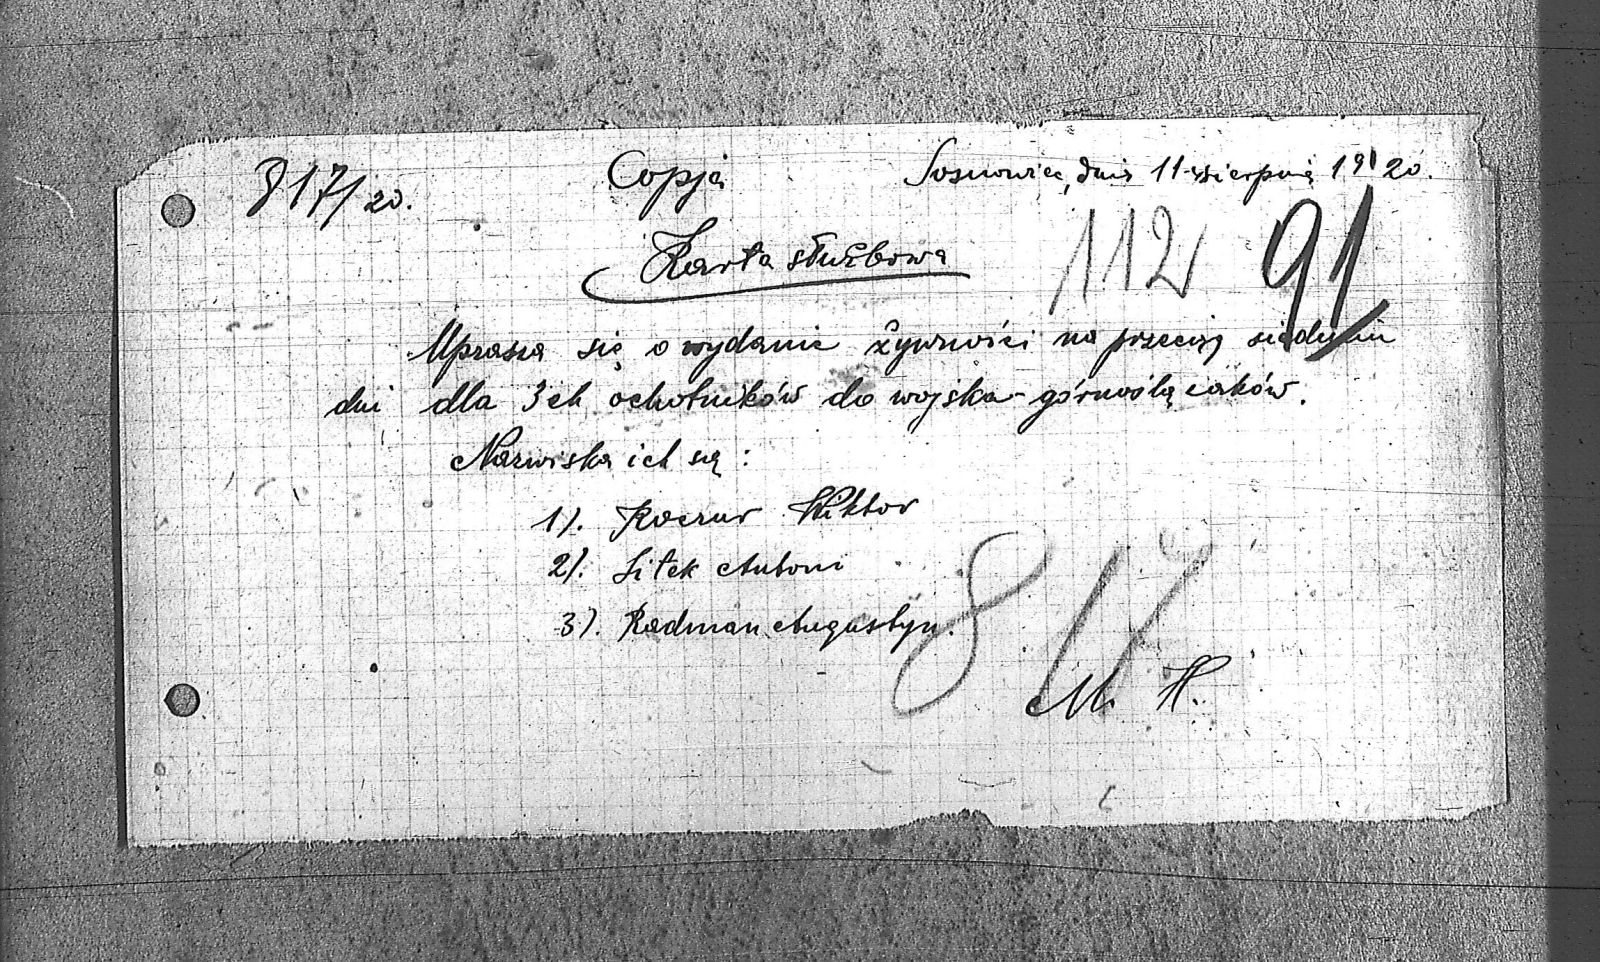 817/20. Copja Sosnowiec, dnia 11 sierpnia 1920.
112 91
Karta służbowa
Uprasza się o wydanie żywności na przeciąg siedmiu
dni dla 3ch ochotników do wojska - górnoślązaków.
Nazwiska ich są:
1). Koczur Wiktor
2). Sitek Antoni
3). Radman Augustyn.
817
M. H.